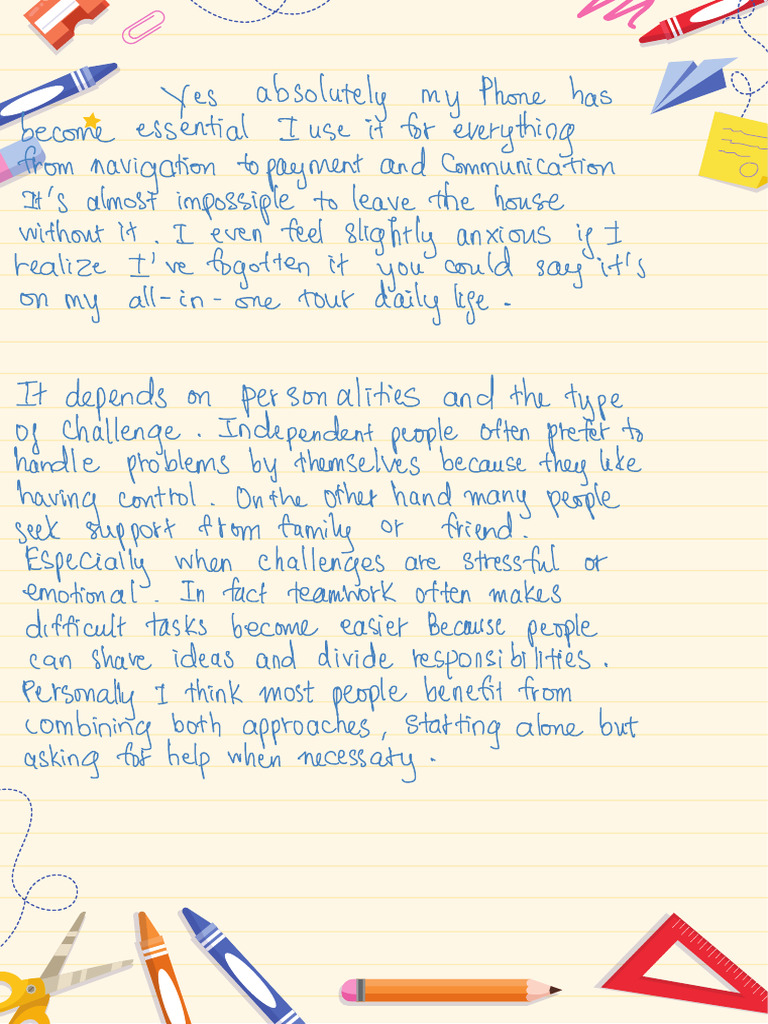 Yes absolutely my Phone has
become essential I use it for everything
from navigation to payment and Communication
It's almost impossiple to leave the house
without it . I even feel slightly anxious if I
realize I've fogotten it you could say it's
on my all-in-one tour daily life .
It depends on personalities and the type
of challenge . Independent people often prefer to
handle problems by themselves because they like
having control . On the other hand many people
seek support from family or friend .
Especially when challenges are stressful or
emotional . In fact teamwork often makes
difficult tasks become easier Because people
can share ideas and divide responsibilities .
Personally I think most people benefit from
combining both approaches , starting alone but
asking for help when necessary .